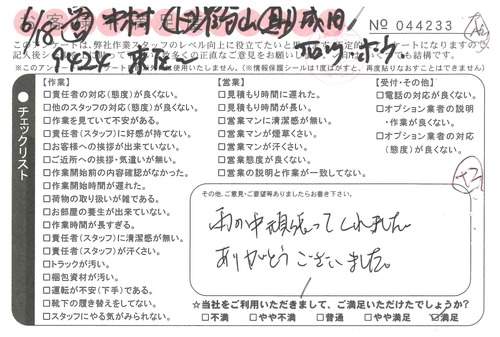 No 044233
このアンケートは、弊社作業スタッフのレベル向上に役立てたいと
【作業】
□責任者(対応)の態度が良くない。
□他のスタッフの対応(態度)が良くない。
□作業を見ていて不安がある。
□責任者(スタッフ)に好感が持てない。
□お客様への挨拶が出来ていない。
□ご近所への挨拶・気遣いが無い。
□作業開始前の内容確認がなかった。
□作業開始時間が遅れた。
□荷物の取り扱いが雑である。
□お部屋の養生が出来ていない。
□作業時間が長すぎる。
□責任者(スタッフ)に清潔感が無い。
□責任者(スタッフ)が汗くさい。
□トラックが汚い。
□梱包資材が汚い。
□運転が不安(下手)である。
□靴下の履き替えをしてない。
□スタッフにやる気がみられない。
【営業】
□見積もり時間に遅れた。
□見積もり時間が長い。
□営業マンに清潔感が無い。
□営業マンが煙草くさい。
□営業マンが汗くさい。
□営業態度が良くない。
□営業の説明と作業が一致してない。
【受付・その他】
□電話の対応が良くない。
□オプション業者の説明
・作業が良くない。
□オプション業者の対応
(態度)が良くない。
チェックリスト
その他、ご意見・ご要望等ありましたらお書き下さい。
雨の中頑張ってくれました。
ありがとうございました。
☆当社をご利用いただきまして、ご満足いただけたでしょうか?
□不満 □やや不満 □普通 □やや満足 ☑満足